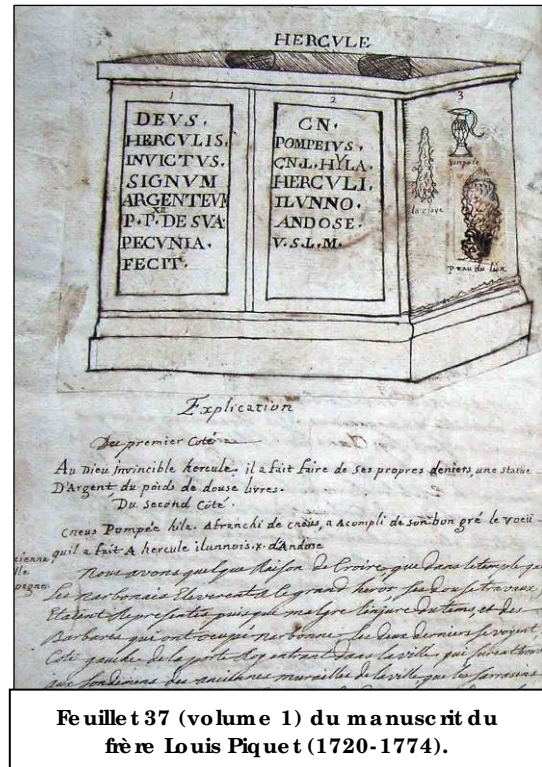 HERCVLE
1
DEVS.
HERCVLIS.
INVICTVS.
SIGNVM
ARGENTEVM
XII
P. P. DE SVA
PECVNIA.
FECIT.
2
CN.
POMPEIVS.
CN. L. HYLA.
HERCVLI.
ILUNNO.
ANDOSE.
V. S. L. M.
3
simpule
la clave
peau du lion
Explication
Du premier Coté
Au Dieu invincible hercule. il a fait faire de ses propres deniers, une statue
D'Argent du poids de douse livres.
Du second Coté.
Cneus Pompée hila. Afranchi de cneüs, a acompli de son bon gré le voeü
quil a fait A hercule ilunnois. x. d'Andose
Nous avons quelque Raison de Croire que dans le temple que
Les narbonais Eleverent a le grand heros, ses douse travaux
Etaient Representés puisque malgre linjure du tems, et des
Barbares qui ont occupé narbonne, les deux derniers se voyent
Coté gauche de la porte Roy entrant dans la ville
aux fondemens des anciennes murailles de la ville que les sarrasins
Feuillet 37 (volume 1) du manuscrit du
frère Louis Piquet (1720-1774).